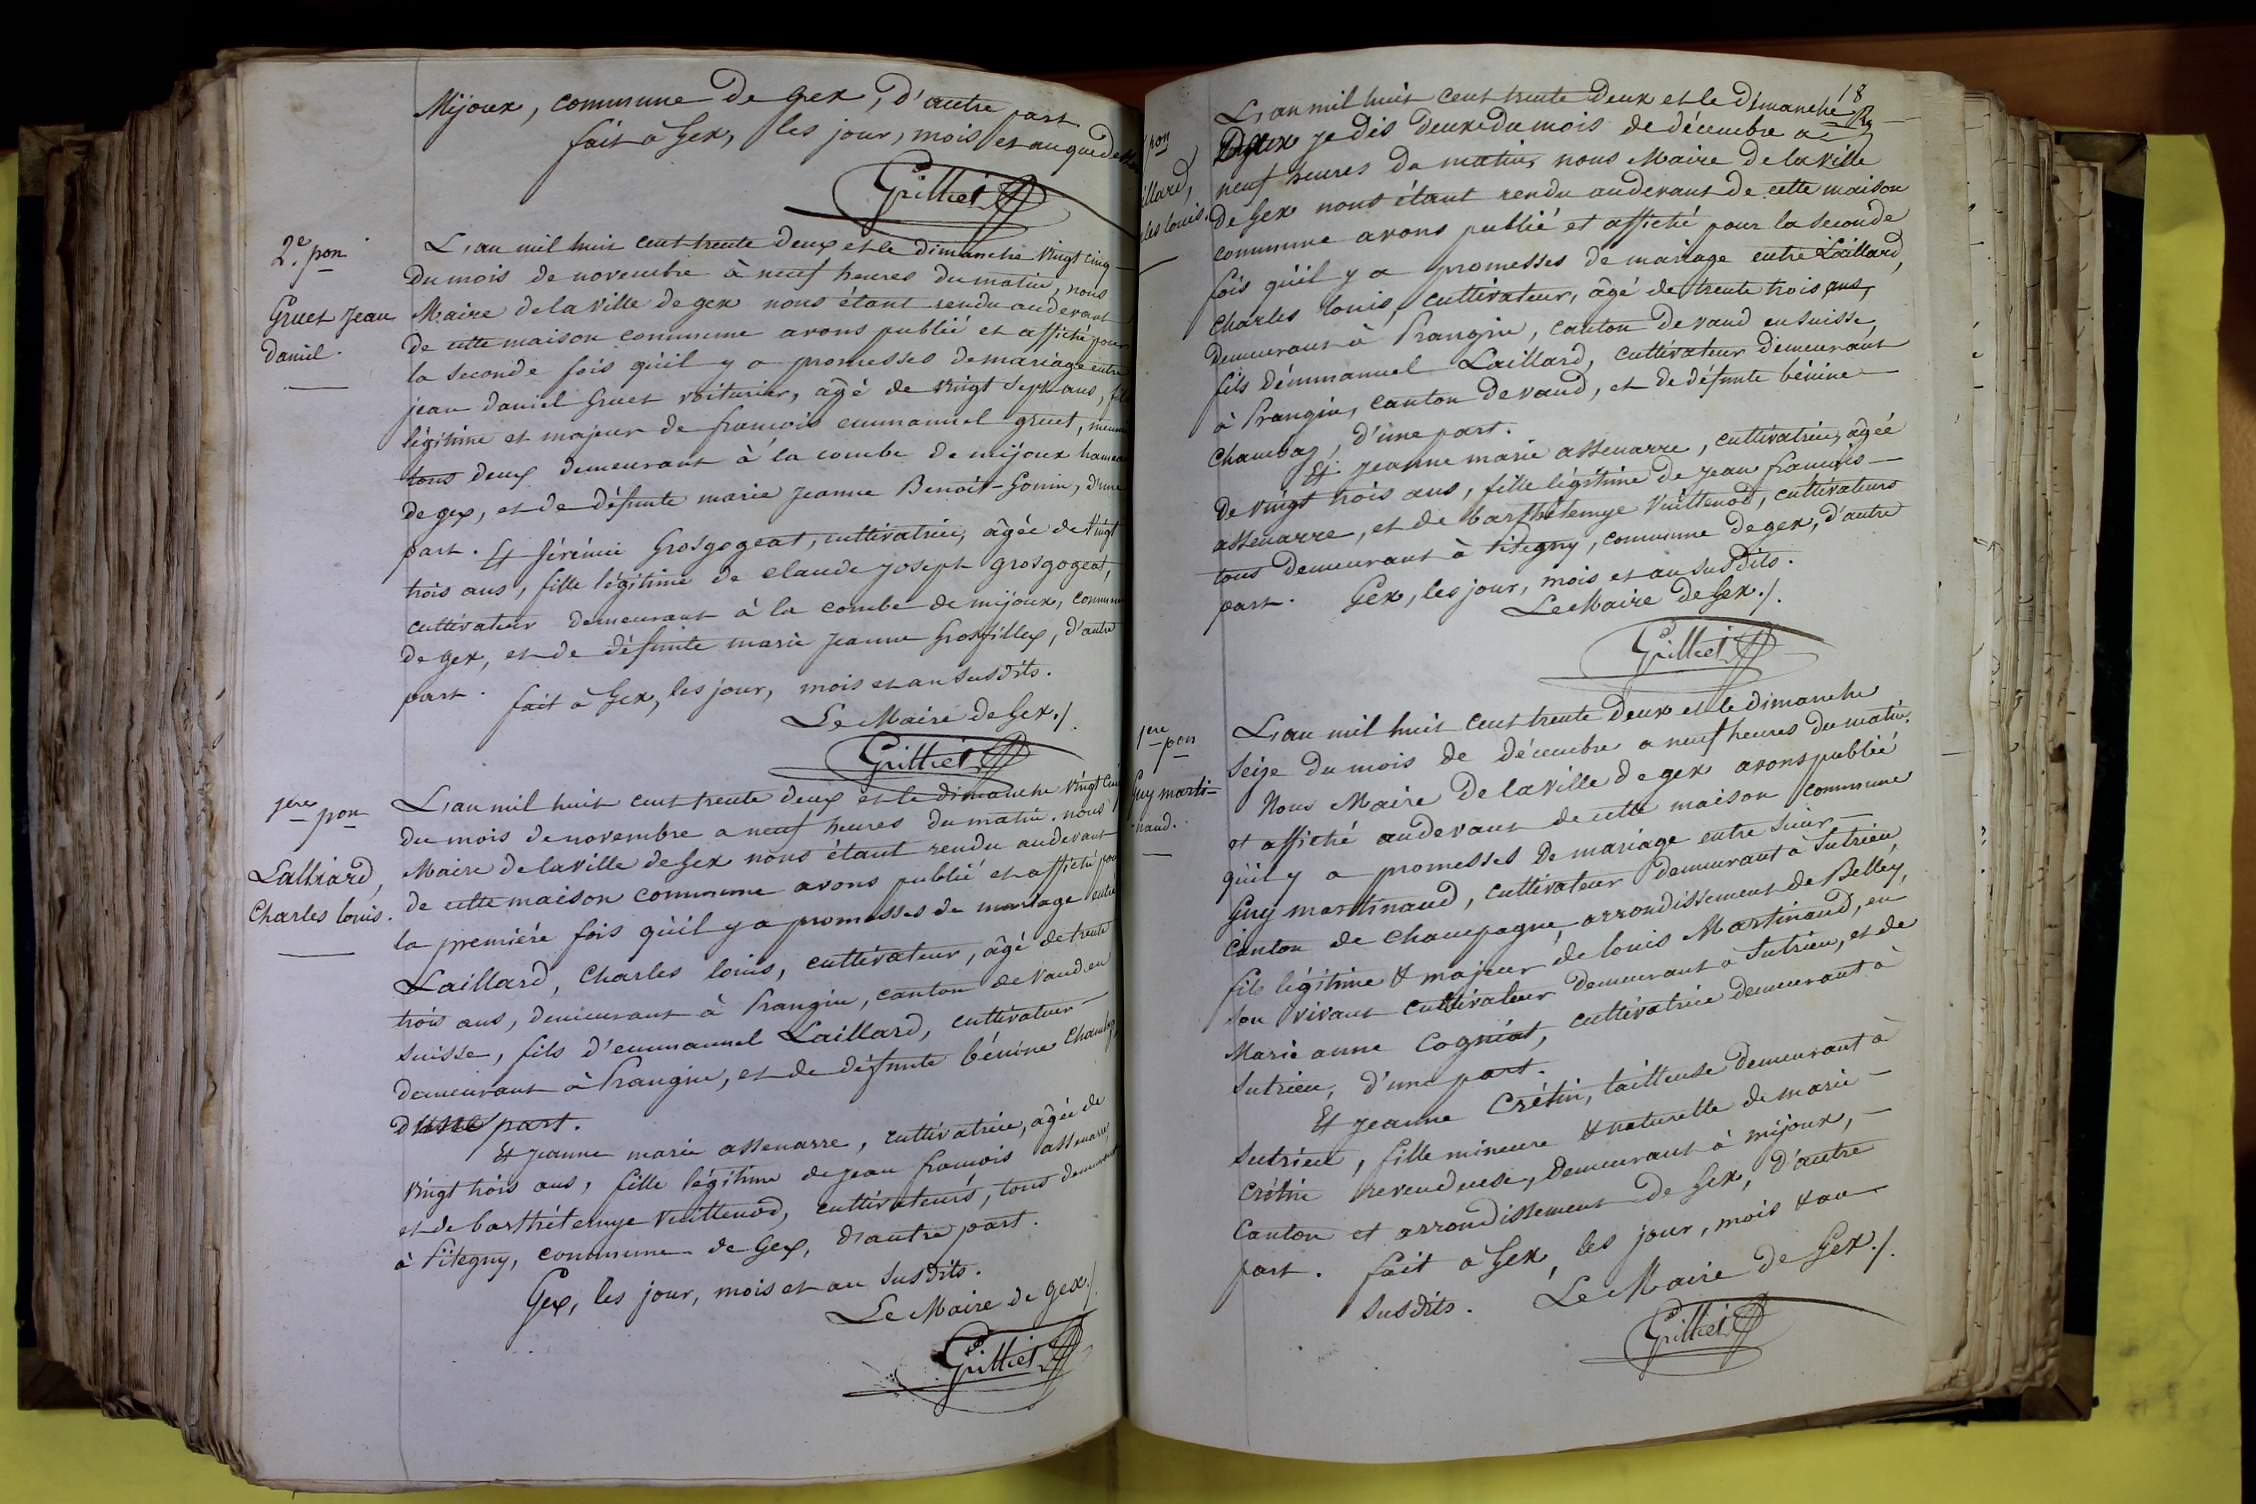 Mijoux, commune de gex, d'autre part
fait à Gex, les jour, mois et an que de
Grilliet
2.e pon
Gruet Jean
daniel.
L'an mil huit cent trente deux et le dimanche vingt cinq
du mois de novembre à neuf heures du matin, nous
Maire de la ville de gex nous étant rendu au devant
de cette maison commune avons publié et affiché pour
la seconde fois qu'il y a promesses de mariage entre
jean daniel Gruet voiturier, âgé de vingt sept ans, fils
légitime et majeur de francois emmanuel gruet,
tous deux demeurant à la combe de mijoux hameau
de gex, et de défunte marie jeanne Benoit-Gonin, d'une
part. Et férénie Grosgogeat, cultivatrice, âgée de vingt
trois ans, fille légitime de claude joseph grosgogeat,
cultivateur demeurant à la combe de mijoux, commune
de gex, et de défunte marie jeanne Grosfillex, d'autre
part. fait à Gex, les jour, mois et an susdits.
Le Maire de Gex ./.
Grilliet
1ere pon
Lalliard,
Charles louis.
L'an mil huit cent trente deux et le dimanche vingt cinq
du mois de novembre a neuf heures du matin. nous
Maire de la ville de Gex nous étant rendu au devant
de cette maison commune avons publié et affiché pour
la première fois qu'il y a promesses de mariage entre
Laillard, Charles louis, cultivateur, âgé de trente
trois ans, demeurant à Prangin, canton de vaud en
suisse, fils d'emmanuel Laillard, cultivateur
demeurant à Prangin, et de défunte bénine Chambaz
d'une part.
Et jeanne marie assenarre, cultivatrice, agée de
vingt trois ans, fille légitime de jean francois assenarre,
et de barthélemye vuittenod, cultivateurs, tous demeurant
à Pitegny, commune de Gex, d'autre part.
Gex, les jour, mois et an susdits.
Le Maire de gex ./.
Grilliet
18
pon
illard,
les louis.
L'an mil huit cent trente deux et le dimanche
je dis deux du mois de décembre a
neuf heures du matin, nous Maire de la ville
de Gex nous étant rendu au devant de cette maison
commune avons publié et affiché pour la seconde
fois qu'il y a promesses de mariage entre Laillard,
Charles louis, cultivateur, âgé de trente trois ans,
demeurant à Prangin, canton de vaud en suisse,
fils d'emmanuel Laillard, cultivateur demeurant
à Prangin, canton de vaud, et de défunte bénine
Chambaz, d'une part.
Et jeanne marie assenarre, cultivatrice, agée
de vingt trois ans, fille légitime de jean francois
assenarre, et de barthélemye vuittenod, cultivateurs
tous demeurant à Pitegny, commune de gex, d'autre
part. Gex, les jour, mois et an susdits.
Le Maire de Gex ./.
Grilliet
1ere pon
Guy marti-
naud.
L'an mil huit cent trente deux et le dimanche
seize du mois de décembre a neuf heures du matin.
Nous Maire de la ville de gex avons publié
et affiché au devant de cette maison commune
qu'il y a promesses de mariage entre sieur
Guy martinaud, cultivateur demeurant à Sutrieu,
Canton de Champagne, arrondissement de Belley,
fils légitime & majeur de louis Martinaud, en
son vivant cultivateur demeurant à Sutrieu, et de
Marie anne Cogniat, cultivatrice demeurant à
Sutrieu, d'une part.
Et jeanne Crétin, tailleuse demeurant à
Sutrieu, fille mineure & naturelle de marie
Crétin revendeuse, demeurant à mijoux,
Canton et arrondissement de Gex, d'autre
part. fait à Gex, les jour, mois & an
susdits. Le Maire de Gex ./.
Grilliet